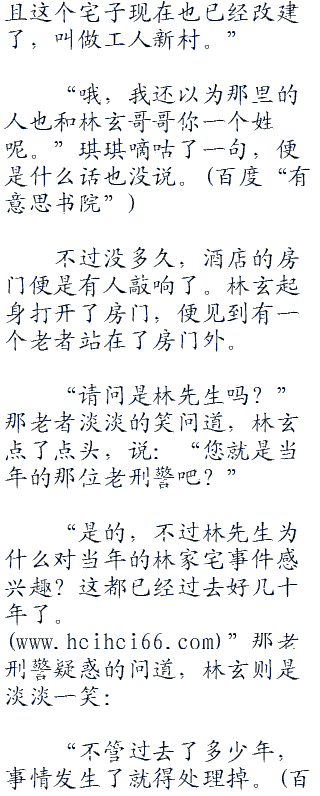 且这个宅子现在也已经改建
了，叫做工人新村。”
“哦，我还以为那里的
人也和林玄哥哥你一个姓
呢。”琪琪嘀咕了一句，便
是什么话也没说。(百度“有
意思书院”)
不过没多久，酒店的房
门便是有人敲响了。林玄起
身打开了房门，便见到有一
个老者站在了房门外。
“请问是林先生吗？”
那老者淡淡的笑问道，林玄
点了点头，说：“您就是当
年的那位老刑警吧？”
“是的，不过林先生为
什么对当年的林家宅事件感
兴趣？这都已经过去好几十
年了。
(www.hcihci66.com)”那老
刑警疑惑的问道，林玄则是
淡淡一笑：
“不管过去了多少年，
事情发生了就得处理掉。(百